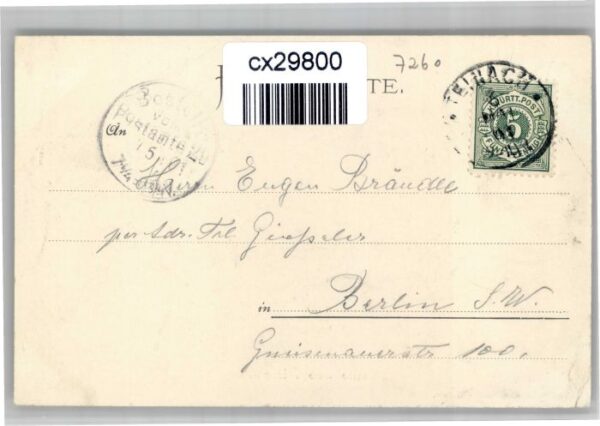 cx29800
7260
TE.
TEINACH
WÜRTT. POST
5
Bestellt
vom
Postamte
15
An
Herrn Eugen Brändle
per Adr. Frl. Giessler
in Berlin S.W.
Gneisenaustr 100.